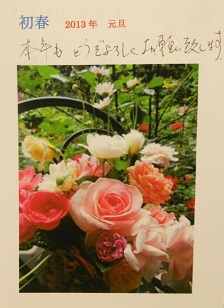 初春 2013年 元旦
本年も どうぞよろしくお願い致します